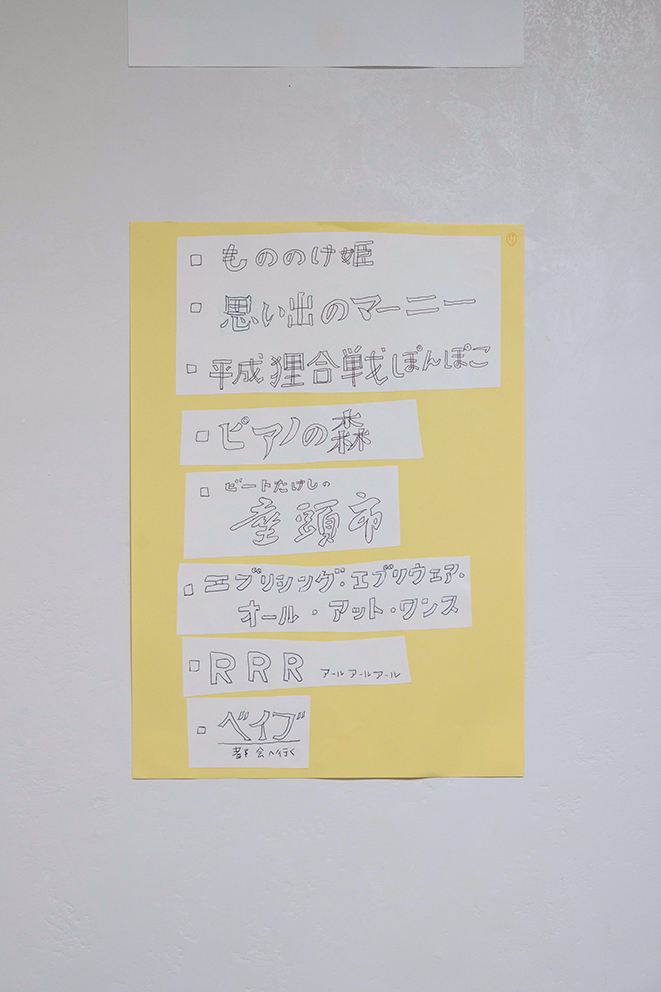 □ もののけ姫
□ 思い出のマーニー
□ 平成狸合戦ぽんぽこ
□ ピアノの森
□ ビートたけしの
座頭市
□ エブリシング・エブリウェア・
オール・アット・ワンス
□ RRR アールアールアール
□ ベイブ
都会へ行く